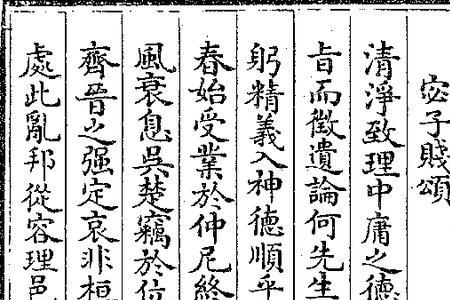 宓子賤頌
清淨致理中庸之德
旨而徵遺論何先生
躬精義入神德順平
春始受業於仲尼終
風衰息吳楚竊於位
齊晉之强定哀非桓
處此亂邦從容理邑